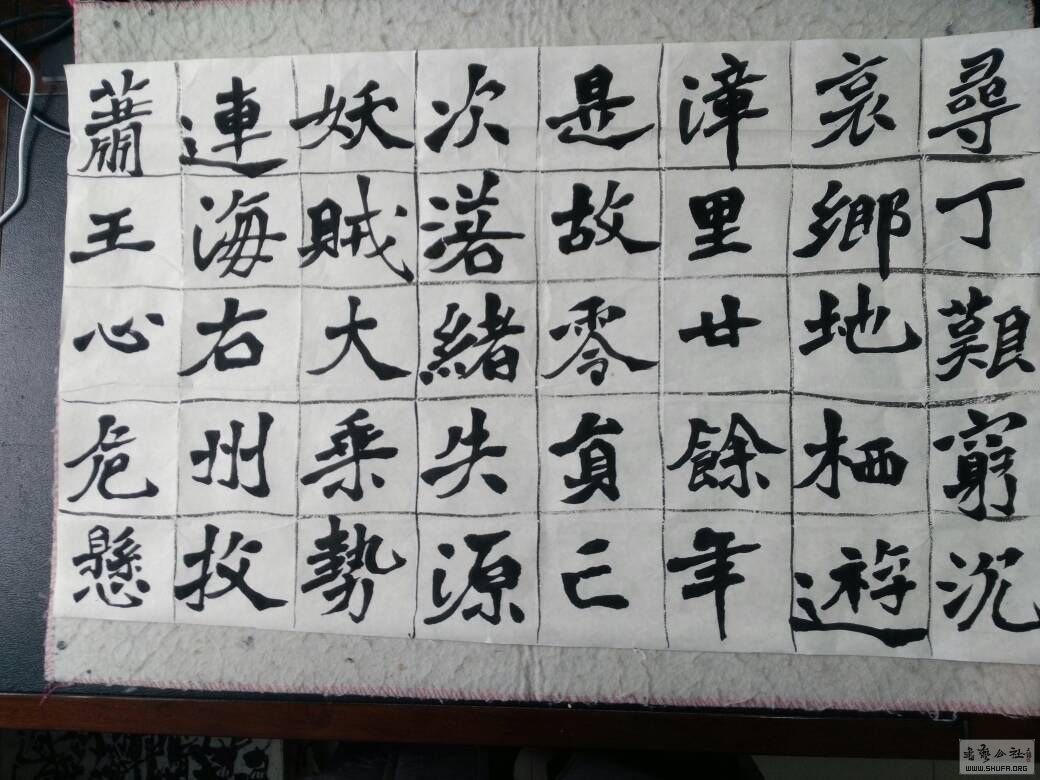 尋丁艱窮沉
哀鄉地栖遊
漳里廿餘年
是故零已
次落緒失源
妖賊大乘勢
連海右州投
蕭王心危懸
书艺公社
WWW.SHUFA.ORG